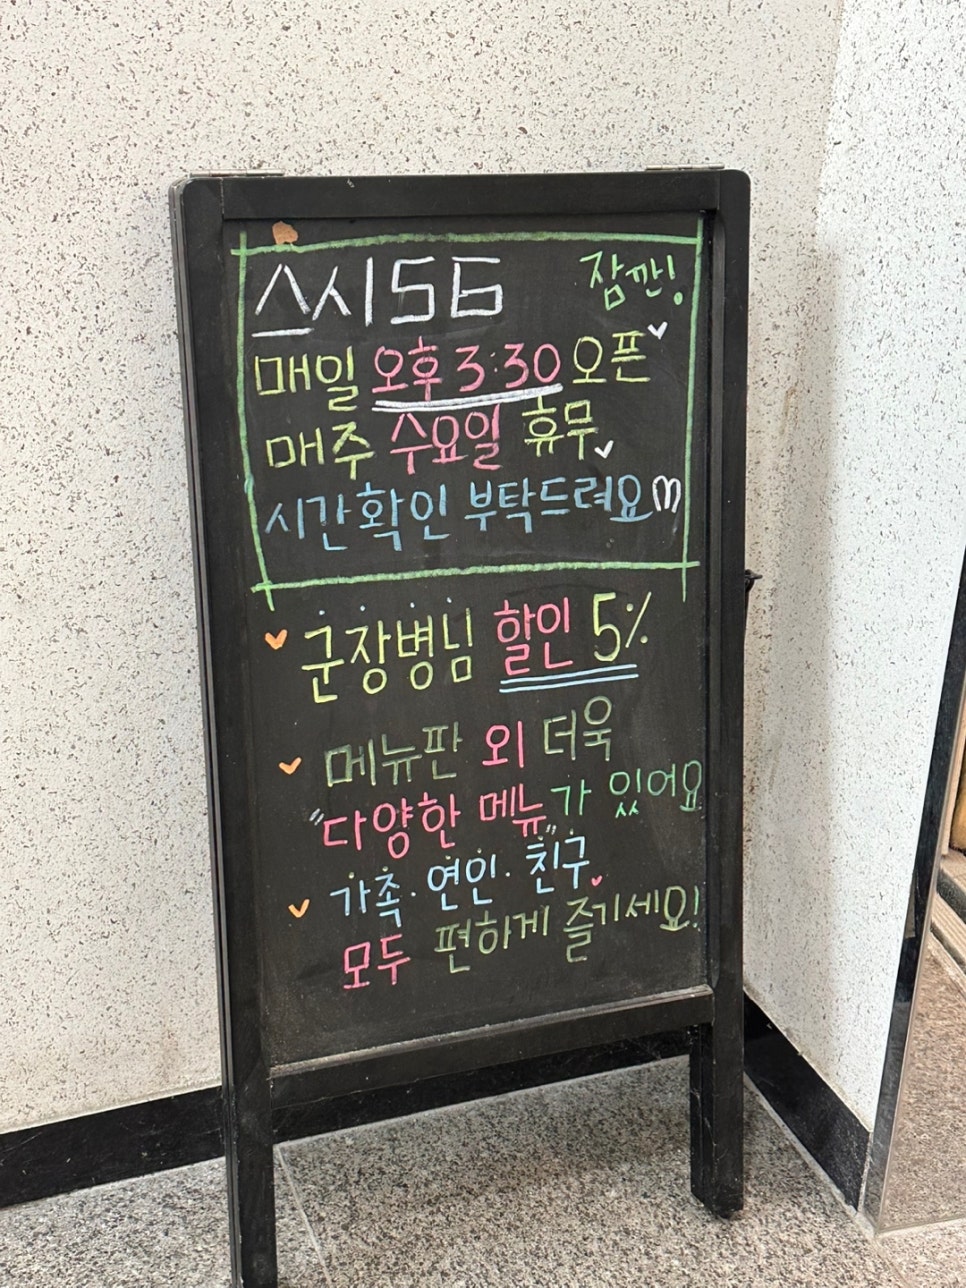 스시56 잠깐!
매일 오후 3:30 오픈
매주 수요일 휴무
시간확인 부탁드려요
군장병님 할인 5%
메뉴판 외 더욱
"다양한 메뉴"가 있어요
가족·연인·친구
모두 편하게 즐기세요!